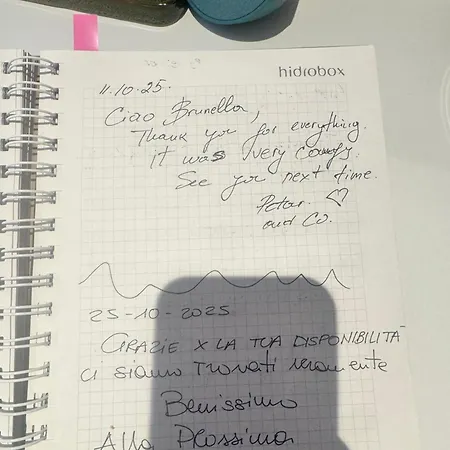 hidrobox
11.10.25.
Ciao Brunella,
Thank you for everything.
it was very comfy.
See you next time.
Petar. ♡
and Co.
25-10-2025
GRAZIE X LA TUA DISPONIBILITÀ
CI SIAMO TROVATI veramente
Benissimo
Alla Prossima